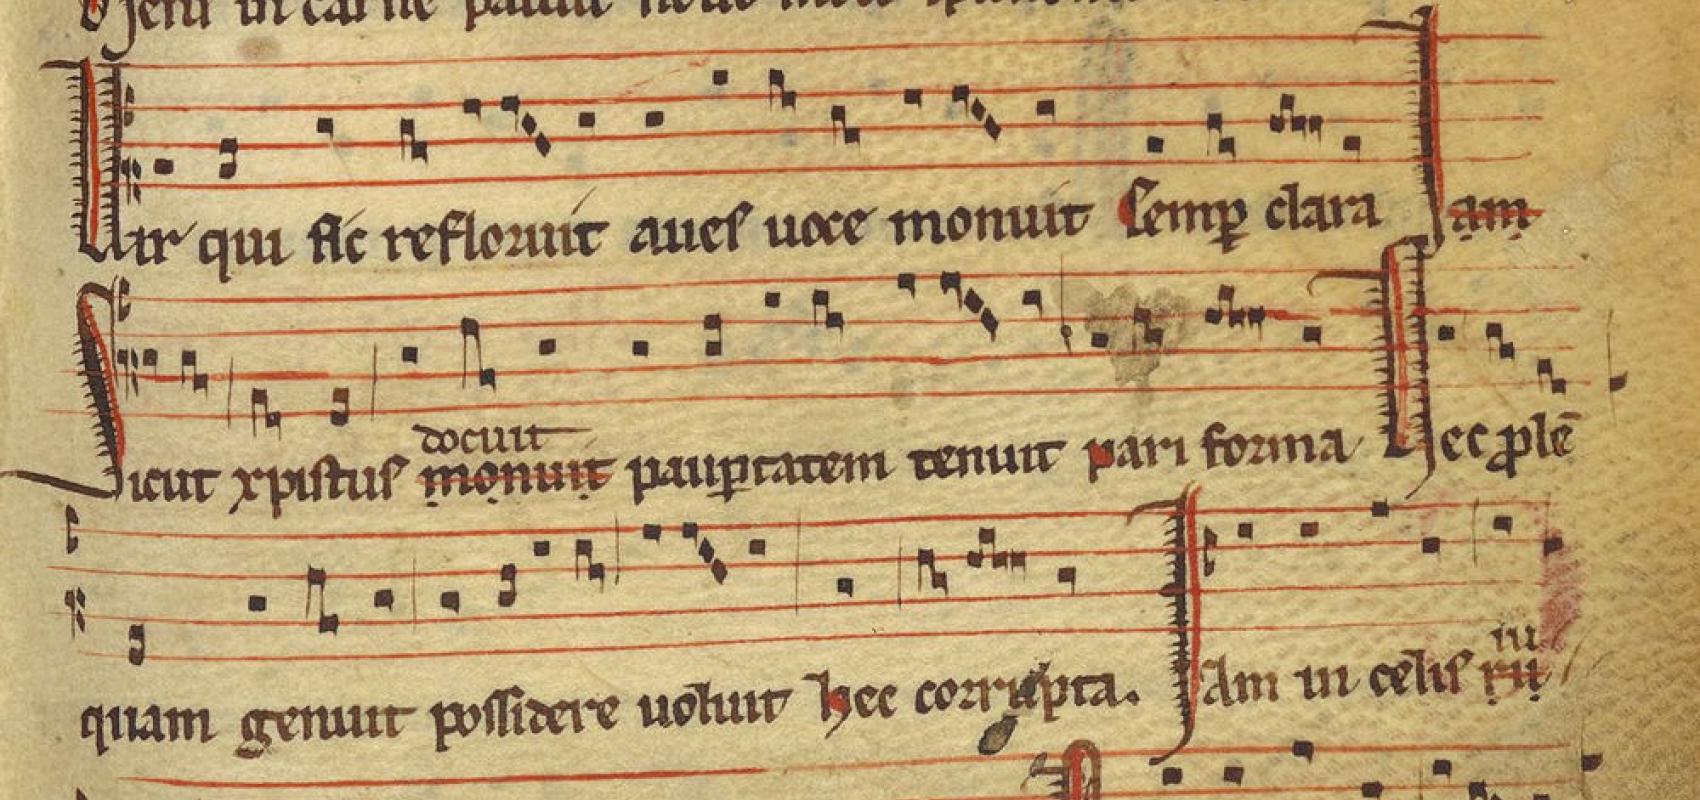 in carne
Vir qui sic refloruit aues uoce monuit semp clara Iam
docuit
Sicut xpistus monuit paupertatem tenuit pari forma Hec plē
quam genuit possidere uoluit hec corrupta. Iam in celis